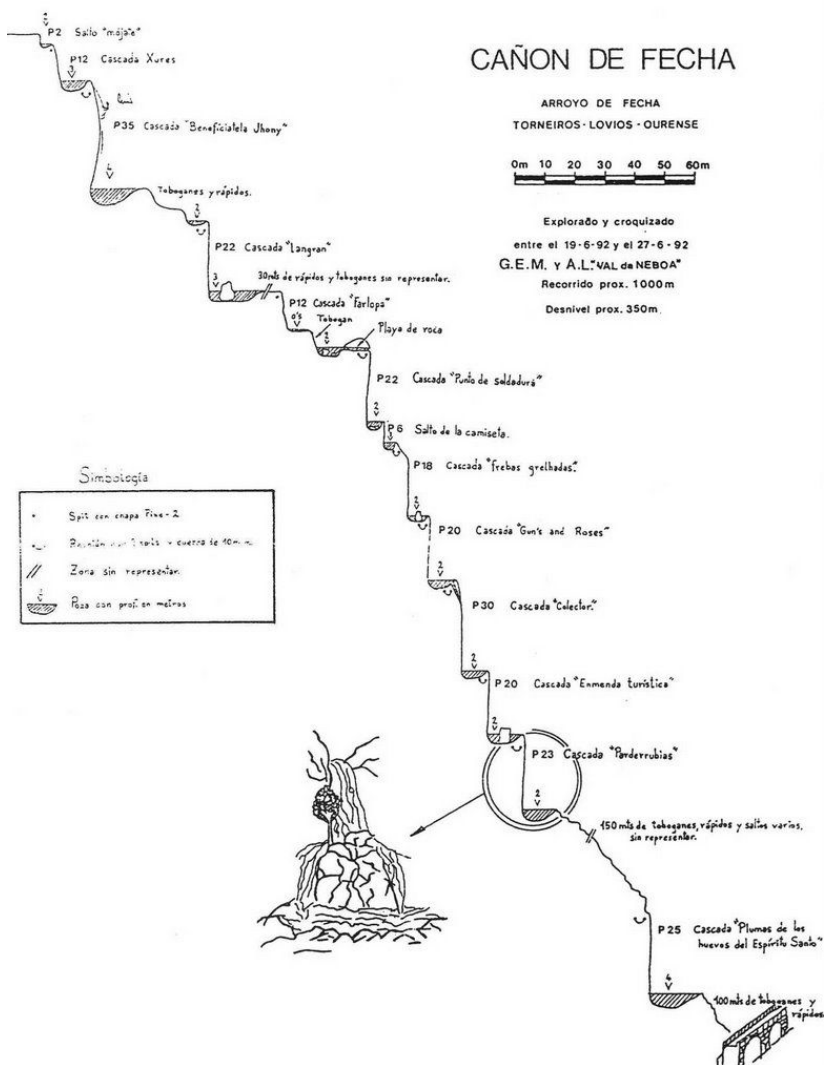 CAÑON DE FECHA
ARROYO DE FECHA
TORNEIROS-LOVIOS-OURENSE
0m 10 20 30 40 50 60m
Explorado y croquizado
entre el 19-6-92 y el 27-6-92
G.E.M. y A.L."VAL de NEBOA"
Recorrido prox. 1000m
Desnivel prox. 350m.
2
P2 Salto "mójate"
P12 Cascada Xures
3
P35 Cascada "Beneficiatela Jhony"
4
Toboganes y rápidos.
2
P22 Cascada "Langran"
3
30mts de rápidos y toboganes sin representar.
P12 Cascada "Farlopa"
0'5
Tobogan
2
Playa de roca
P22 Cascada "Punto de soldadura"
2
P6 Salto de la camiseta.
3
P18 Cascada "frebas grelhadas."
2
P20 Cascada "Gun's and Roses"
2
P30 Cascada "Colector."
2
P20 Cascada "Enmenda turística"
2
P23 Cascada "Parderrubias"
2
150 mts de toboganes, rápidos y saltos varios,
sin representar.
P25 Cascada "Plumas de los
huevos del Espíritu Santo"
4
100 mts de toboganes y
rápidos.
Simbología
Spit con chapa Fixe-2
Reunión con 2 spits y cuerda de 10 m.m.
Zona sin representar.
Poza con prof. en metros